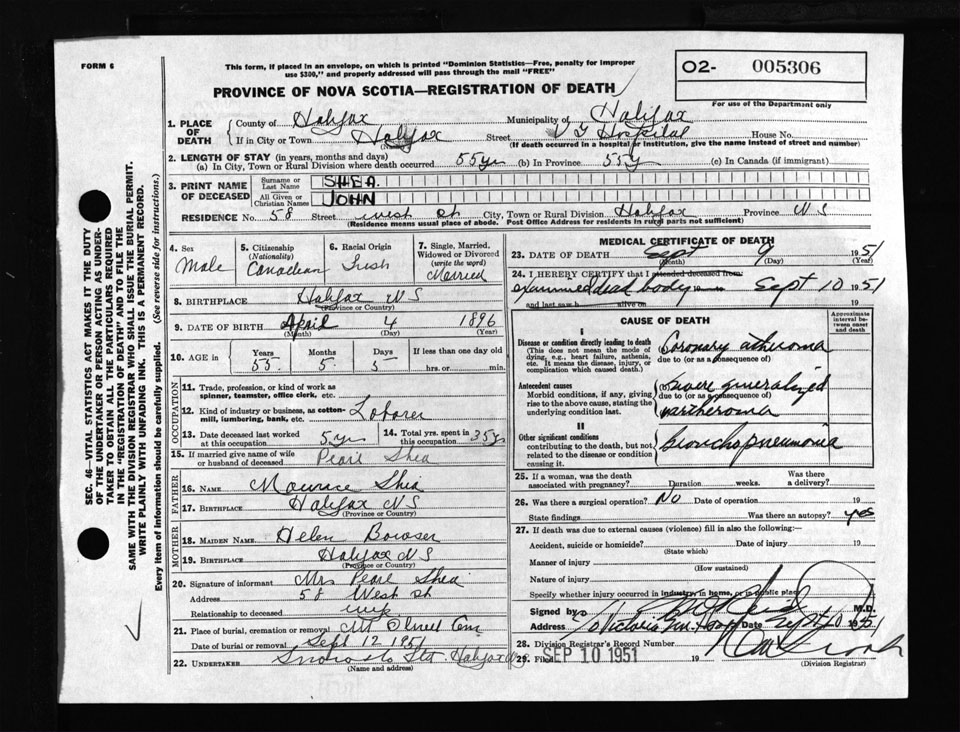 FORM 6
This form, if placed in an envelope, on which is printed "Dominion Statistics—Free, penalty for improper
use $300," and properly addressed will pass through the mail "FREE"
O2- 005306
PROVINCE OF NOVA SCOTIA—REGISTRATION OF DEATH
For use of the Department only
1. PLACE OF DEATH
County of Halifax Municipality of Halifax
If in City or Town Halifax Street V G Hospital House No.
(Name) (If death occurred in a hospital or institution, give name instead of street and number)
2. LENGTH OF STAY (in years, months and days)
(a) In City, Town or Rural Division where death occurred 55 yrs (b) In Province 55 y (c) In Canada (if immigrant)
3. PRINT NAME OF DECEASED
Surname or Last Name SHEA.
All Given or Christian Names JOHN
RESIDENCE No. 58 Street West St City, Town or Rural Division Halifax Province N S
(Residence means usual place of abode. Post Office Address for residents in rural parts not sufficient)
4. Sex Male
5. Citizenship (Nationality) Canadian
6. Racial Origin Irish
7. Single, Married, Widowed or Divorced (write the word) Married
8. BIRTHPLACE Halifax N S
(Province or Country)
9. DATE OF BIRTH April 4 1896
(Month) (Day) (Year)
10. AGE in Years 55. Months 5. Days 5 If less than one day old
hrs. or min.
OCCUPATION
11. Trade, profession, or kind of work as
spinner, teamster, office clerk, etc.
12. Kind of industry or business, as cotton-
mill, lumbering, bank, etc. Laborer
13. Date deceased last worked
at this occupation 5 yrs
14. Total yrs. spent in
this occupation 35 yrs
15. If married give name of wife
or husband of deceased Pearl Shea
FATHER
16. NAME Shea
17. BIRTHPLACE Halifax N S
(Province or Country)
MOTHER
18. MAIDEN NAME Helen Bowser
19. BIRTHPLACE Halifax N S
(Province or Country)
20. Signature of informant Mrs Pearl Shea
Address 58 West St
Relationship to deceased wife
21. Place of burial, cremation or removal Mt Olivet Cem
Date of burial or removal Sept 12 1951
22. UNDERTAKER Snow & Co Ltd. Halifax N.S.
(Name and address)
MEDICAL CERTIFICATE OF DEATH
23. DATE OF DEATH Sept 9 1951
(Month) (Day) (Year)
24. I HEREBY CERTIFY that I attended deceased from
examined dead body Sept 10 1951
and last saw h alive on 19
CAUSE OF DEATH
Approximate interval between onset and death
I
Disease or condition directly leading to death
(This does not mean the mode of
dying, e.g., heart failure, asthenia,
etc. It means the disease, injury, or
complication which caused death.)
(a) Coronary atheroma
due to (or as a consequence of)
Antecedent causes
Morbid conditions, if any, giving
rise to the above cause, stating the
underlying condition last.
(b) severe generalized
due to (or as a consequence of)
atheroma
II
Other significant conditions
contributing to the death, but not
related to the disease or condition
causing it.
bronchopneumonia
25. If a woman, was the death
associated with pregnancy? Duration weeks. Was there a delivery?
26. Was there a surgical operation? No Date of operation 19
State findings Was there an autopsy? yes
27. If death was due to external causes (violence) fill in also the following:—
Accident, suicide or homicide? Date of injury 19
(State which)
Manner of injury
(How sustained)
Nature of injury
Specify whether injury occurred in industry, in home, or in public place
Signed by M.D.
Address c/o Victoria Gen. Hosp Date Sept 10 1951
28. Division Registrar's Record Number
29. Filed SEP 10 1951 19
(Division Registrar)
SEC. 46—VITAL STATISTICS ACT MAKES IT THE DUTY
OF THE UNDERTAKER OR PERSON ACTING AS UNDER-
TAKER TO OBTAIN ALL THE PARTICULARS REQUIRED
IN THE "REGISTRATION OF DEATH" AND TO FILE THE
SAME WITH THE DIVISION REGISTRAR WHO SHALL ISSUE THE BURIAL PERMIT.
WRITE PLAINLY WITH UNFADING INK. THIS IS A PERMANENT RECORD.
Every item of information should be carefully supplied. (See reverse side for instructions.)